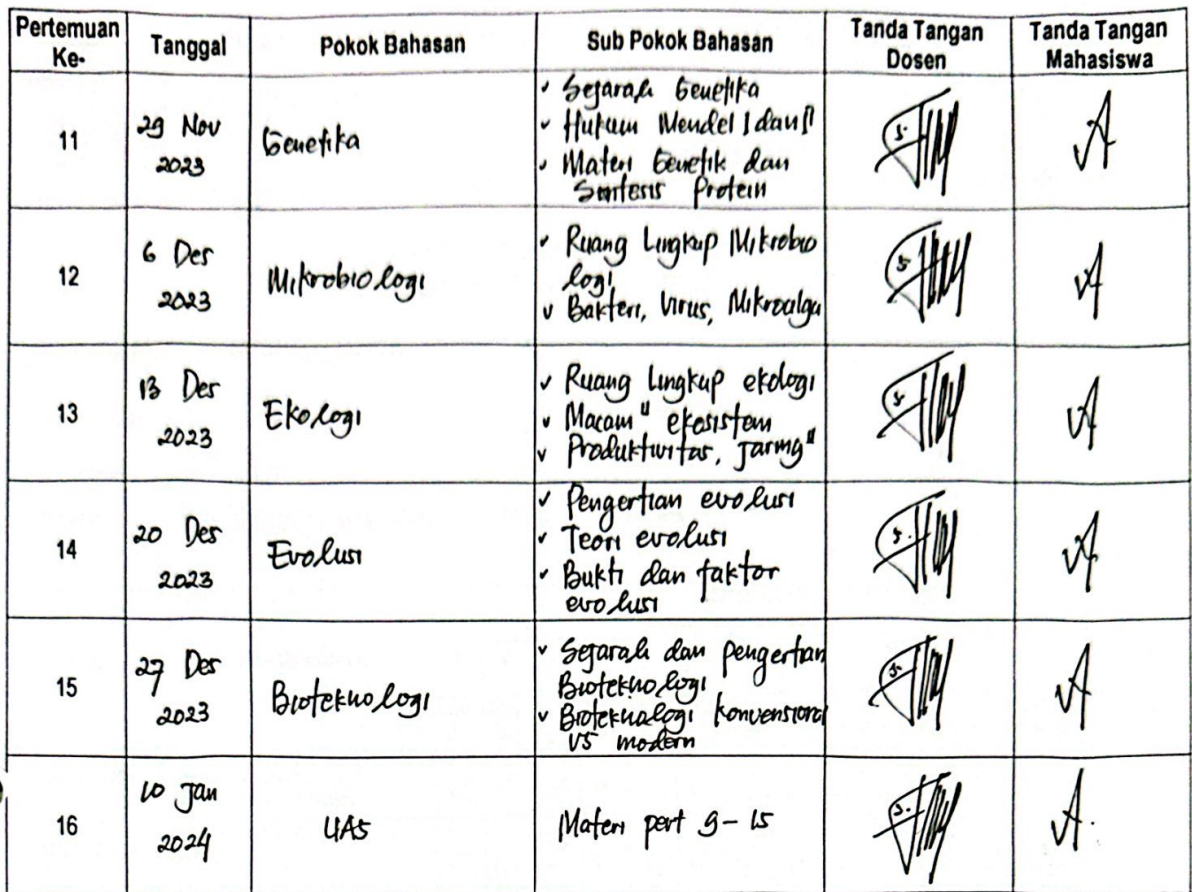 Pertemuan Ke-
Tanggal
Pokok Bahasan
Sub Pokok Bahasan
Tanda Tangan Dosen
Tanda Tangan Mahasiswa
11
29 Nov
2023
Genetika
✓ Sejarah Genetika
✓ Hukum Mendel I dan II
✓ Materi Genetik dan
Sintesis Protein
12
6 Des
2023
Mikrobiologi
✓ Ruang Lingkup Mikrobio
logi
✓ Bakteri, Virus, Mikroalga
13
13 Des
2023
Ekologi
✓ Ruang Lingkup ekologi
✓ Macam" ekosistem
✓ Produktivitas, Jaring"
14
20 Des
2023
Evolusi
✓ Pengertian evolusi
✓ Teori evolusi
✓ Bukti dan faktor
evolusi
15
27 Des
2023
Bioteknologi
✓ Sejarah dan pengertian
Bioteknologi
✓ Bioteknologi konvensional
VS modern
16
10 Jan
2024
UAS
Materi pert 9-15